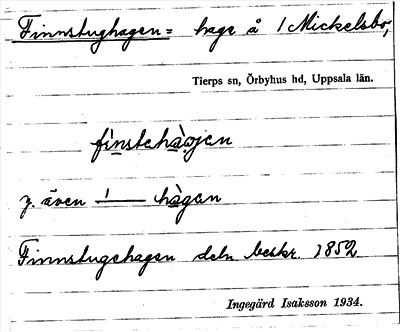 Finnstughagen = hage å 1 Mickelsbo,
Tierps sn, Örbyhus hd, Uppsala län.
fìnstehàgen
y. även –ˈ– hàgen
Finnstugehagen deln beskr. 1852
Ingegärd Isaksson 1934.